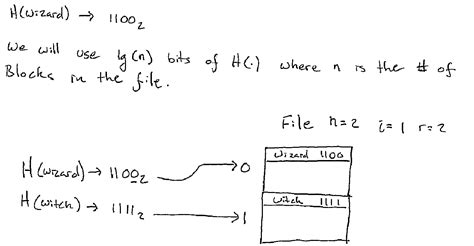 H(wizard) → 1100₂
We will use lg(n) bits of H(·) where n is the # of
Blocks in the file.
File n=2 i=1 r=2
H(wizard) → 1100₂ → 0 wizard 1100
H(witch) → 1111₂ → 1 witch 1111